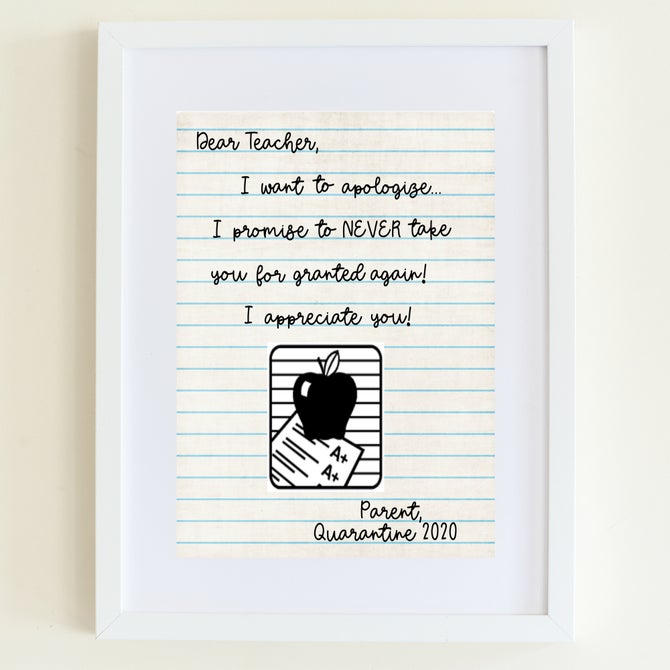 Dear Teacher,
I want to apologize...
I promise to NEVER take
you for granted again!
I appreciate you!
A+
A+
Parent,
Quarantine 2020